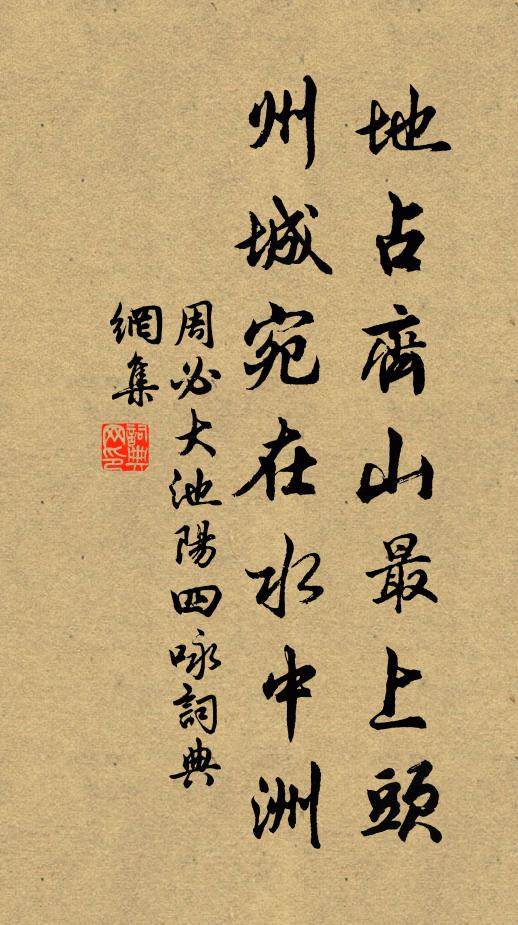 地占齊山最上頭
州城宛在水中洲
周必大池陽四咏詞典
網集
詞典網印